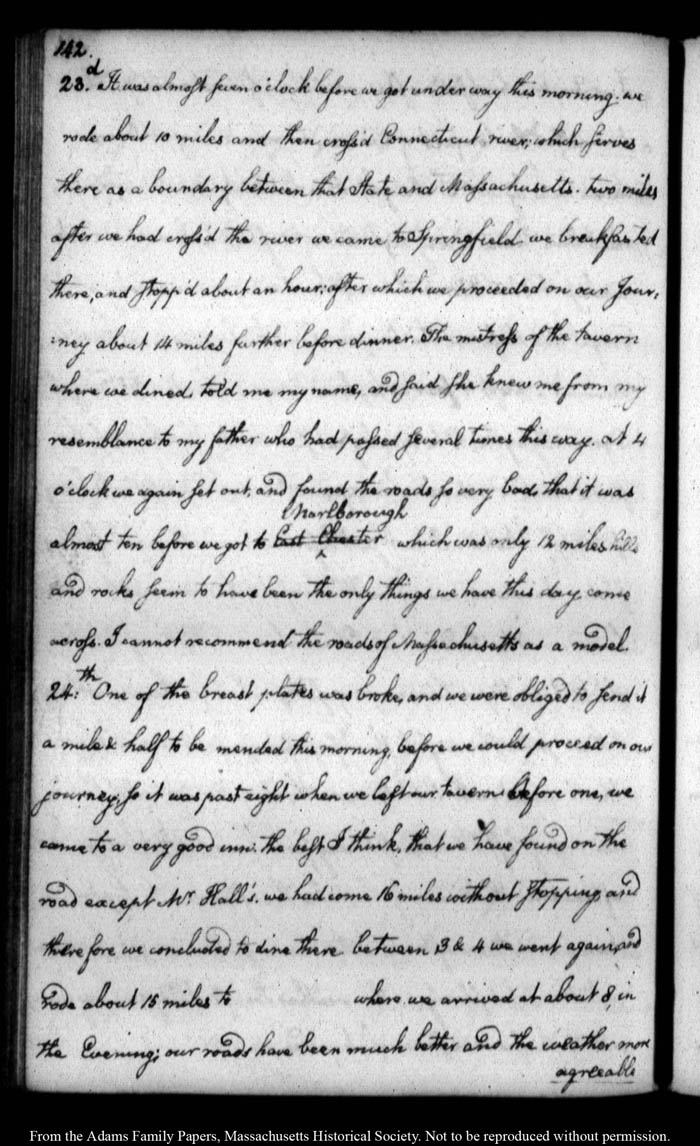 142.
23.d It was almost seven o'clock before we got under way this morning. we
rode about 10 miles and then cross'd Connecticut river; which serves
there as a boundary between that State and Massachusetts. two miles
after we had cross'd the river we came to Springfield we breakfasted
there, and stopp'd about an hour; after which we proceeded on our Jour:
:ney about 14 miles further before dinner. The mistress of the tavern
where we dined, told me my name, and said she knew me from my
resemblance to my father who had passed several times this way. at 4
o'clock we again set out, and found the roads so very bad, that it was
Marlborough
almost ten before we got to East Chester which was only 12 miles hills
and rocks seem to have been the only things we have this day come
across. I cannot recommend the roads of Massachusetts as a model.
24:th One of the breast plates was broke, and we were obliged to send it
a mile & half to be mended this morning, before we could proceed on our
journey, so it was past eight when we left our tavern. Before one, we
came to a very good inn. the best I think, that we have found on the
road except Mr. Hall's. we had come 16 miles without stopping and
therefore we concluded to dine there between 3 & 4 we went again, and
rode about 15 miles to where we arrived at about 8, in
the Evening; our roads have been much better and the weather more
agreeable
From the Adams Family Papers, Massachusetts Historical Society. Not to be reproduced without permission.